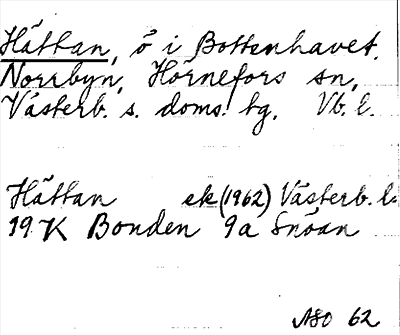 Hättan, ö i Bottenhavet.
Norrbyn, Hörnefors sn,
Västerb. s. doms. tg. Vb. l.
Hättan ek (1962) Västerb. l.
19 K Bonden 9a Snöan
ASO 62